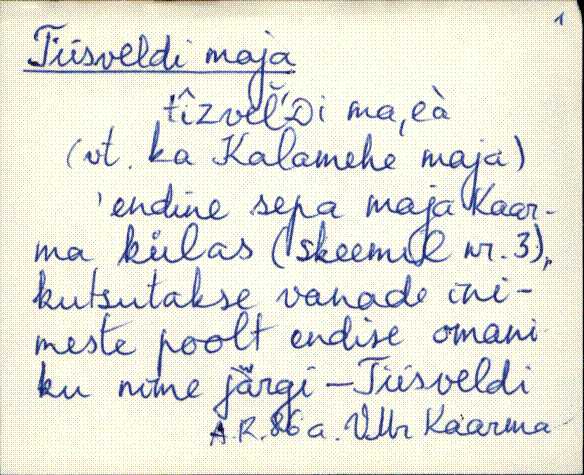 1
Tiisveldi maja
tîzvel̆'Di ma,eà
(vt. ka Kalamehe maja)
'endine sepa maja Kaar-
ma külas (skeemil nr. 3),
kutsutakse vanade ini-
meste poolt endise omani
ku nime järgi – Tiisveldi
A.R. 86 a. VMr Kaarma